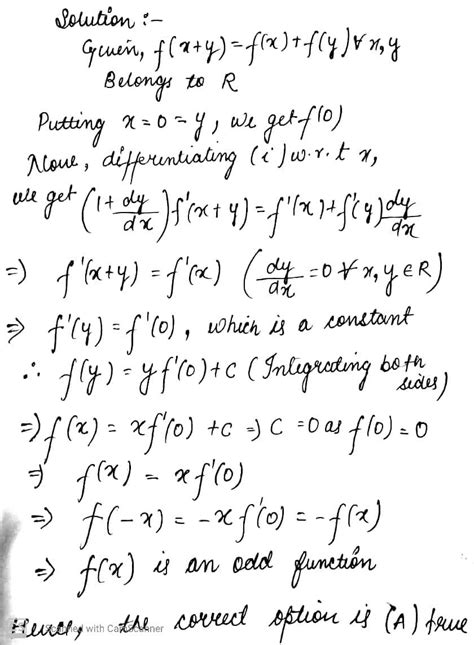 Solution :-
Given, f(x+y) = f(x) + f(y) ∀ x, y
Belongs to R
Putting x = 0 = y, we get f(0)
Now, differentiating (i) w.r.t x,
we get (1 + dy/dx) f'(x+y) = f'(x) + f'(y) dy/dx
⇒) f'(x+y) = f'(x) (dy/dx = 0 ∀ x, y ∈ R)
⇒ f'(y) = f'(0), which is a constant
∴ f(y) = y f'(0) + c (Integrating both sides)
⇒) f(x) = x f'(0) + c ⇒) C = 0 as f(0) = 0
⇒ f(x) = x f'(0)
⇒ f(-x) = -x f'(0) = -f(x)
⇒ f(x) is an odd function
Hence, the correct option is (A) true
with CamScanner